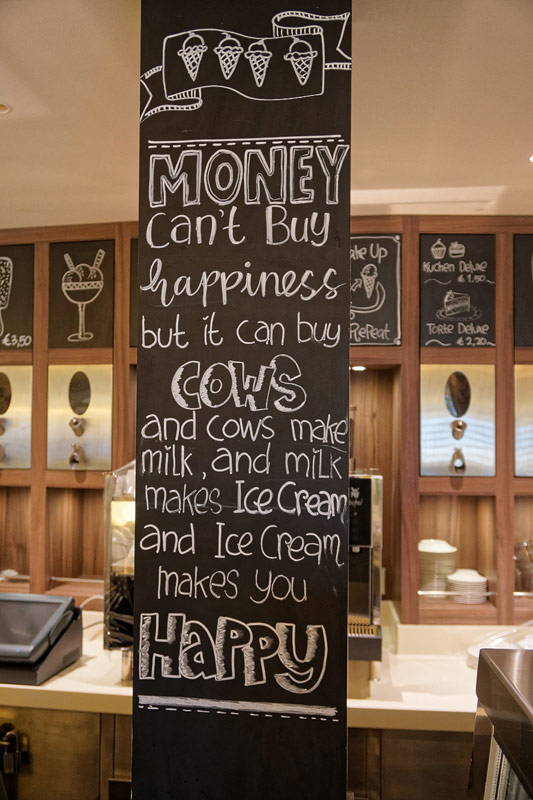 MONEY
Can't Buy
happiness
but it can buy
COWS
and cows make
milk, and milk
makes Ice Cream
and Ice Cream
makes you
Happy
€3,50
Up
Repeat
Kuchen Deluxe
€1.50
Torte Deluxe
€2,20